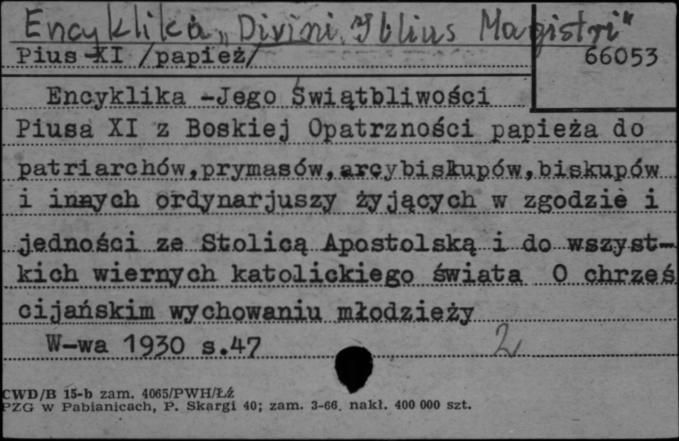 Encyklika „Divini Illius Magistri"
Pius XI /papież/
66053
Encyklika -Jego Świątbliwości
Piusa XI z Boskiej Opatrzności papieża do
patriarchów,prymasów,arcybiskupów,biskupów
i innych ordynarjuszy żyjących w zgodzie i
jedności ze Stolicą Apostolską i do wszyst-
kich wiernych katolickiego świata O chrześ
cijańskim wychowaniu młodzieży
W-wa 1930 s.47
2
CWD/B 15-b zam. 4065/PWH/Łź
PZG w Pabianicach, P. Skargi 40; zam. 3-66. nakł. 400 000 szt.